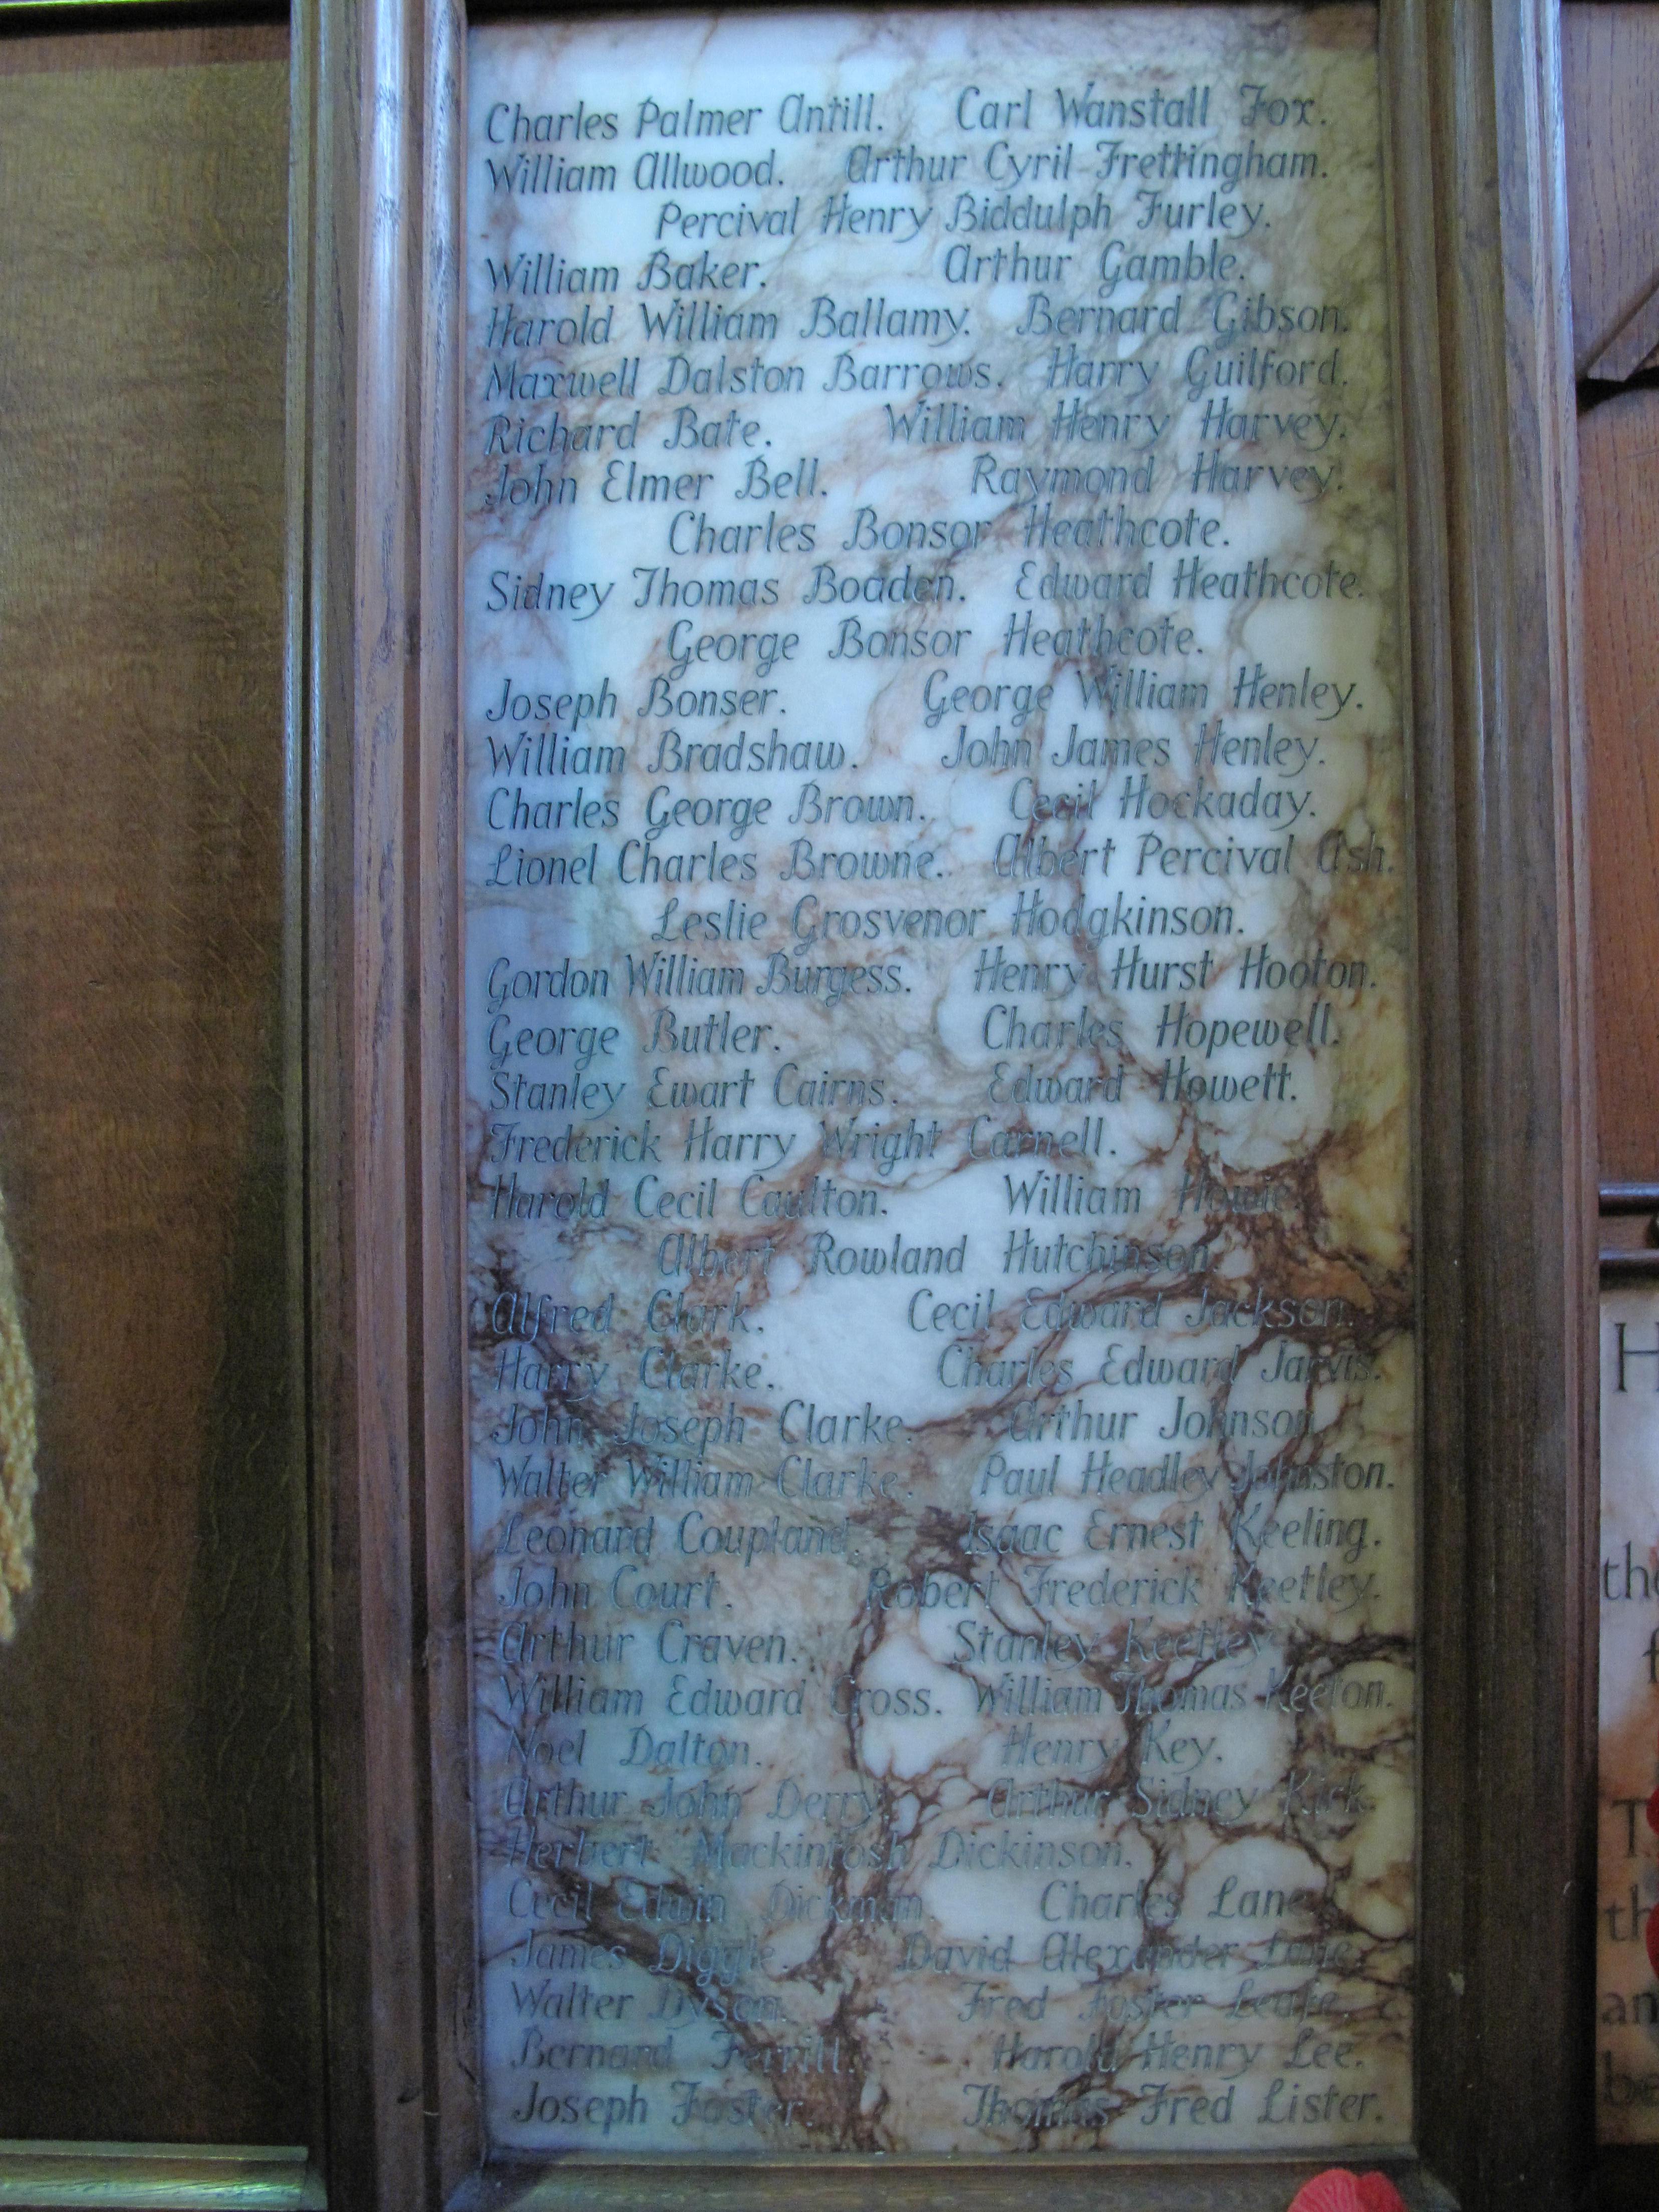 Charles Palmer Antill. Carl Wanstall Fox.
William Allwood. Arthur Cyril Frettingham.
Percival Henry Biddulph Furley.
William Baker. Arthur Gamble.
Harold William Ballamy. Bernard Gibson.
Maxwell Dalston Barrows. Harry Guilford.
Richard Bate. William Henry Harvey.
John Elmer Bell. Raymond Harvey.
Charles Bonsor Heathcote.
Sidney Thomas Boaden. Edward Heathcote.
George Bonsor Heathcote.
Joseph Bonser. George William Henley.
William Bradshaw. John James Henley.
Charles George Brown. Cecil Hockaday.
Lionel Charles Browne. Albert Percival Ash.
Leslie Grosvenor Hodgkinson.
Gordon William Burgess. Henry Hurst Hooton.
George Butler. Charles Hopewell.
Stanley Ewart Cairns. Edward Howett.
Frederick Harry Wright Carnell.
Harold Cecil Caulton. William Howie.
Albert Rowland Hutchinson.
Alfred Clark. Cecil Edward Jackson.
Harry Clarke. Charles Edward Jarvis.
John Joseph Clarke. Arthur Johnson.
Walter William Clarke. Paul Headley Johnston.
Leonard Coupland. Isaac Ernest Keeling.
John Court. Robert Frederick Keetley.
Arthur Craven. Stanley Keetley.
William Edward Cross. William Thomas Keeton.
Noel Dalton. Henry Key.
Arthur John Derry. Arthur Sidney Kirk.
Herbert Mackintosh Dickinson.
Cecil Edwin Dickman. Charles Lane.
James Diggle. David Alexander Lane.
Walter Dyson. Fred Foster Leafe.
Bernard Ferrill. Harold Henry Lee.
Joseph Foster. Thomas Fred Lister.